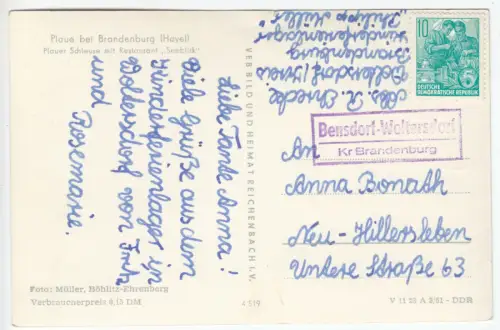 Plaue bei Brandenburg (Havel)
Plauer Schleuse mit Restaurant „Seeblick"
Liebe Tante Anna!
Viele Grüße aus dem
Kinderferienlager in
Woltersdorf von Fritz
und Rosemarie.
Foto: Müller, Böhlitz-Ehrenberg
Verbraucherpreis 0,15 DM
VEB BILD UND HEIMAT REICHENBACH I.V.
4519
Abs. R.
Woltersdorf/Kreis
Brandenburg
Kinderferienlager
„Philipp Müller"
10
DEUTSCHE
DEMOKRATISCHE REPUBLIK
Bensdorf-Woltersdorf
Kr Brandenburg
An
Anna Bonath
Neu-Hillersleben
Untere Straße 63
DDR